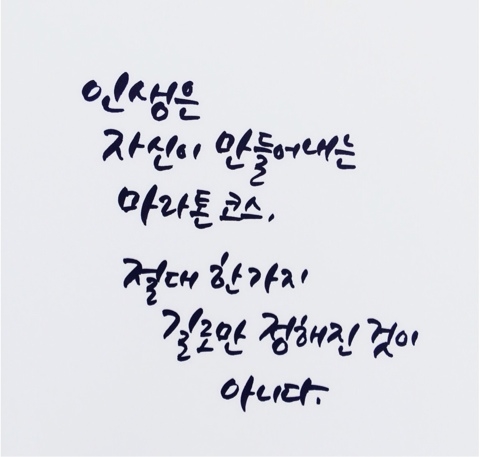 인생은
자신이 만들어내는
마라톤 코스.
절대 한가지
길로만 정해진 것이
아니다.